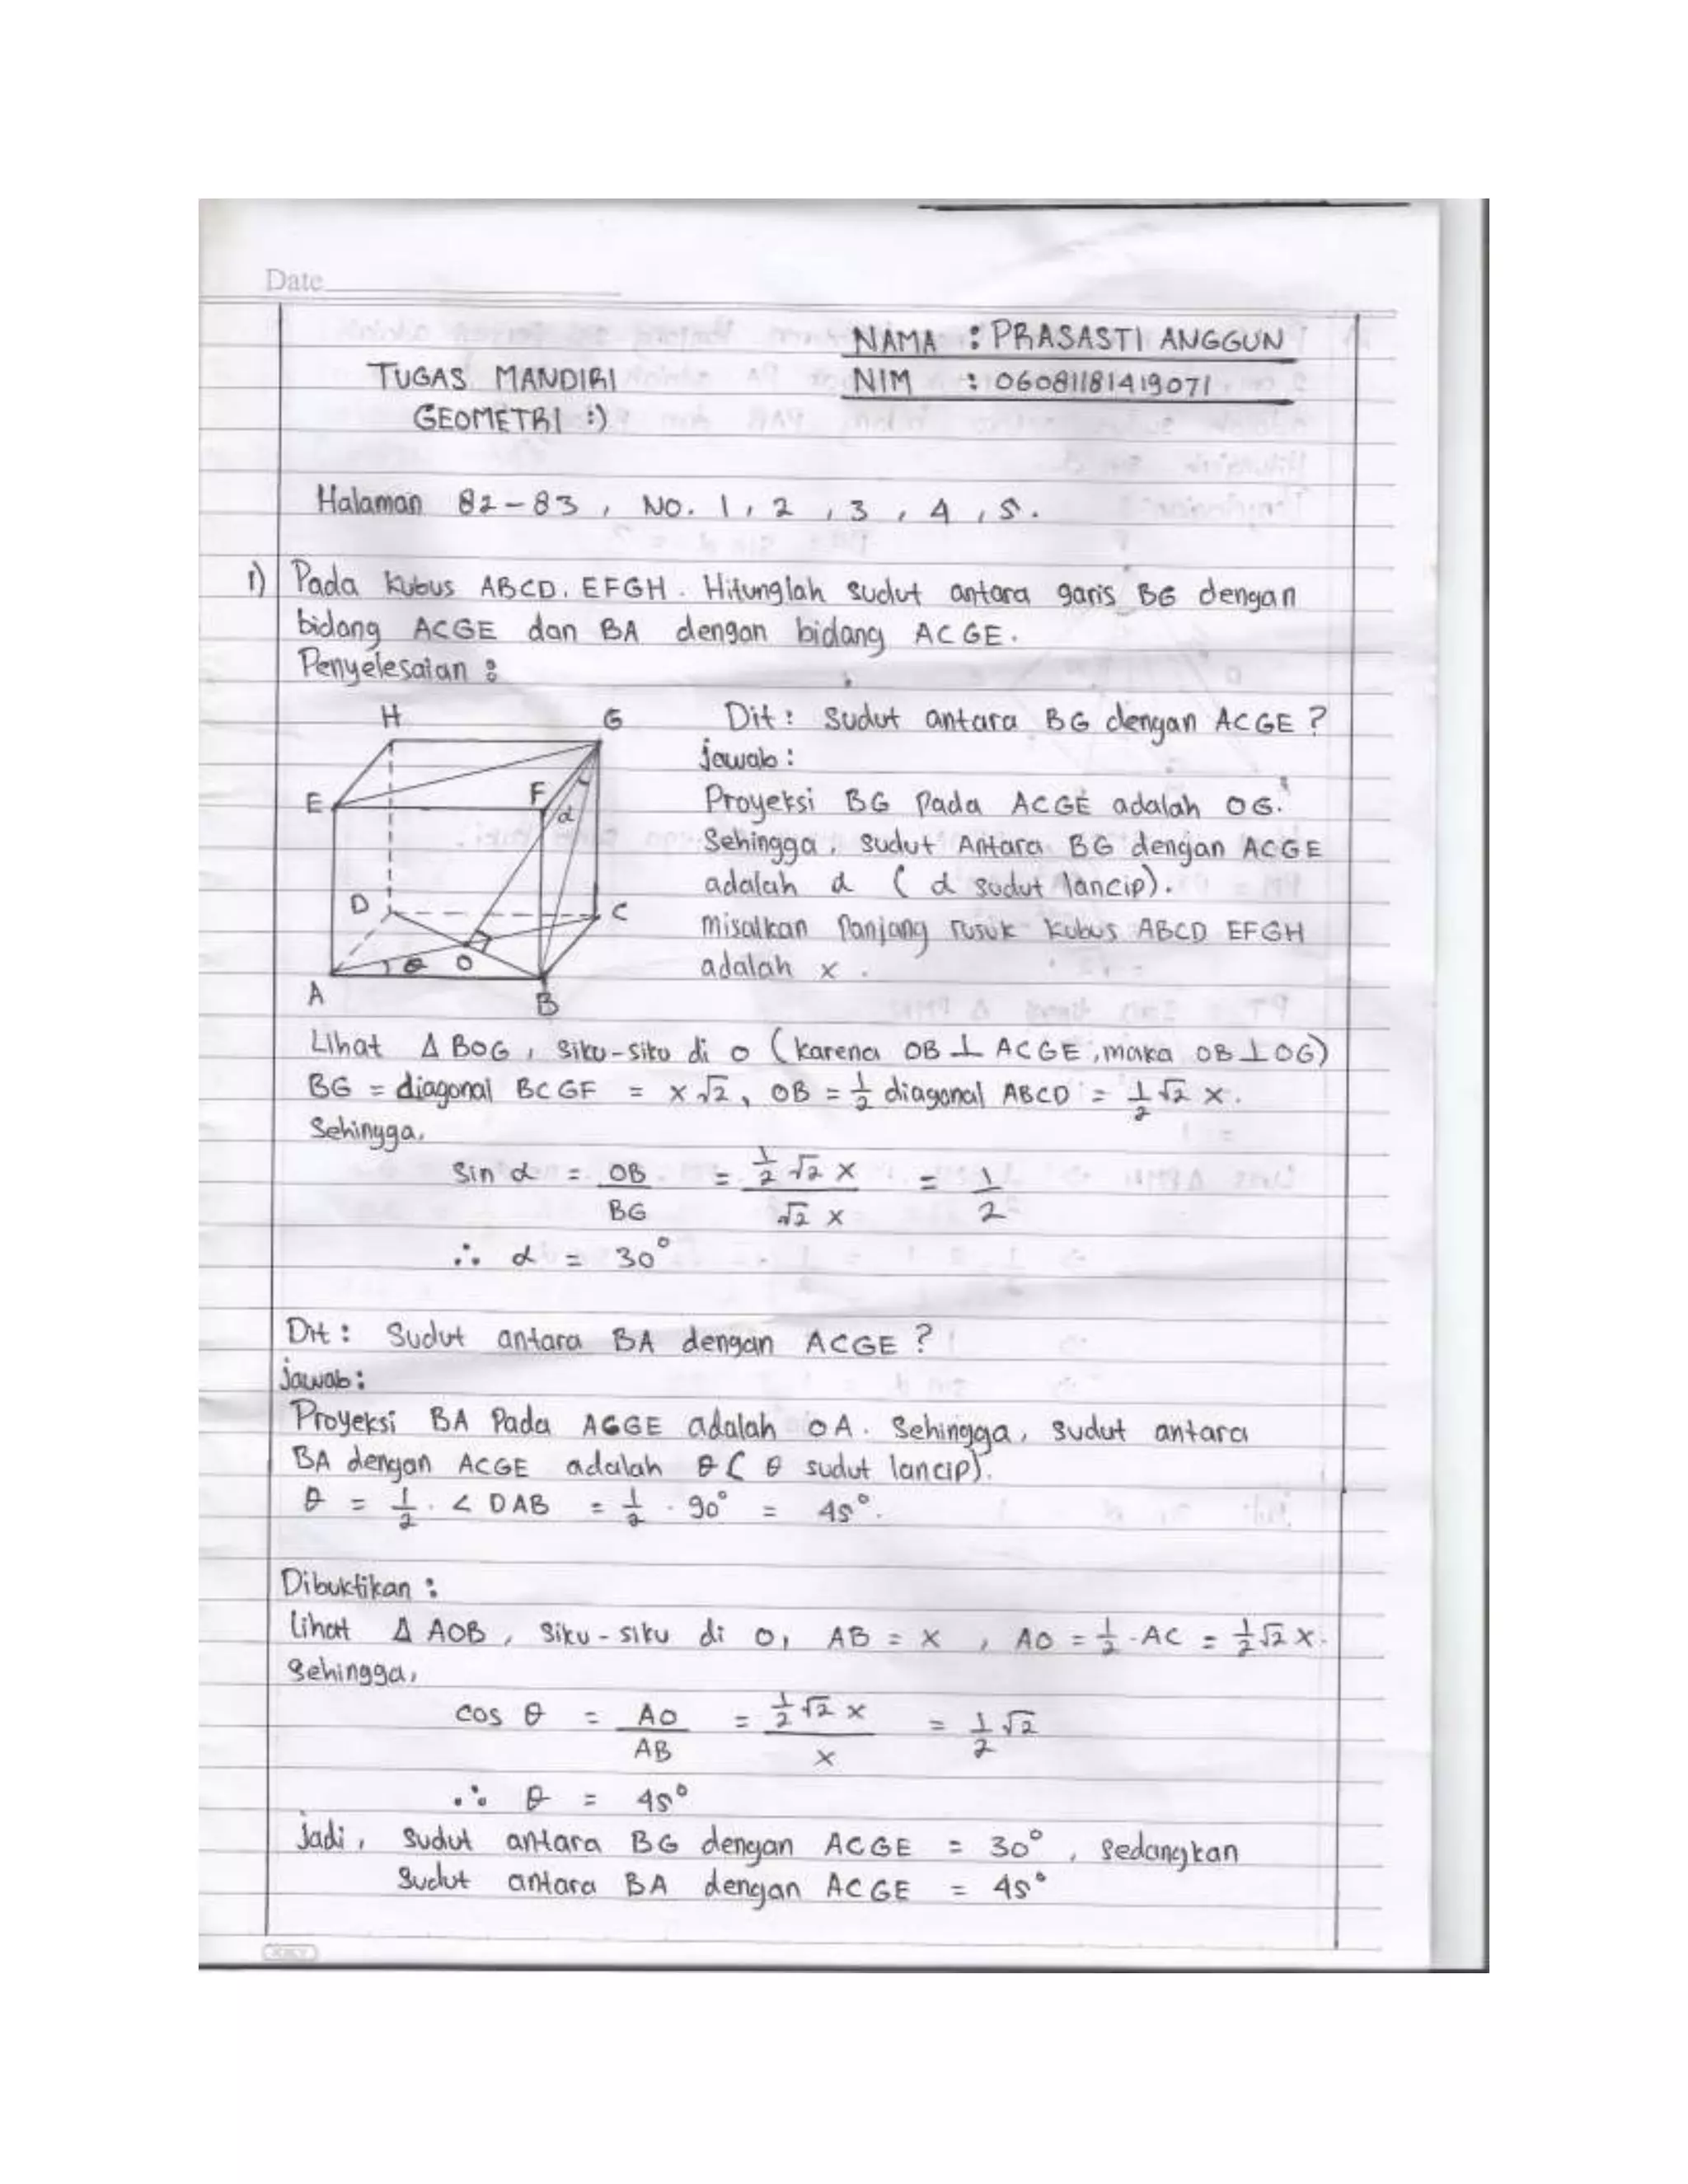 Date
NAMA : PRASASTI ANGGUN
TUGAS MANDIRI
NIM : 06081181419071
GEOMETRI :)
Halaman 82-83, NO. 1, 2, 3, 4, 5.
1) Pada kubus ABCD. EFGH. Hitunglah sudut antara garis BG dengan
bidang ACGE dan BA dengan bidang ACGE.
Penyelesaian :
H G
E F α
D C
θ O
A B
Dit : Sudut antara BG dengan ACGE ?
jawab :
Proyeksi BG pada ACGE adalah OG.
Sehingga, sudut Antara BG dengan ACGE
adalah α ( α sudut lancip).
misalkan Panjang rusuk kubus ABCD EFGH
adalah x .
Lihat Δ BOG, siku-siku di O (karena OB ⊥ ACGE, maka OB ⊥ OG)
BG = diagonal BCGF = x √2, OB = 1/2 diagonal ABCD = 1/2 √2 x.
Sehingga,
Sin α = OB/BG = 1/2 √2 x / √2 x = 1/2
∴ α = 30°
Dit : Sudut antara BA dengan ACGE ?
jawab :
Proyeksi BA Pada AGGE adalah OA. Sehingga, sudut antara
BA dengan ACGE adalah θ ( θ sudut lancip).
θ = 1/2 . < DAB = 1/2 . 90° = 45°.
Dibuktikan :
Lihat Δ AOB, siku-siku di O, AB = x , AO = 1/2 . AC = 1/2 √2 x.
Sehingga,
cos θ = AO/AB = 1/2 √2 x / x = 1/2 √2
∴ θ = 45°
Jadi, sudut antara BG dengan ACGE = 30°, sedangkan
Sudut antara BA dengan ACGE = 45°